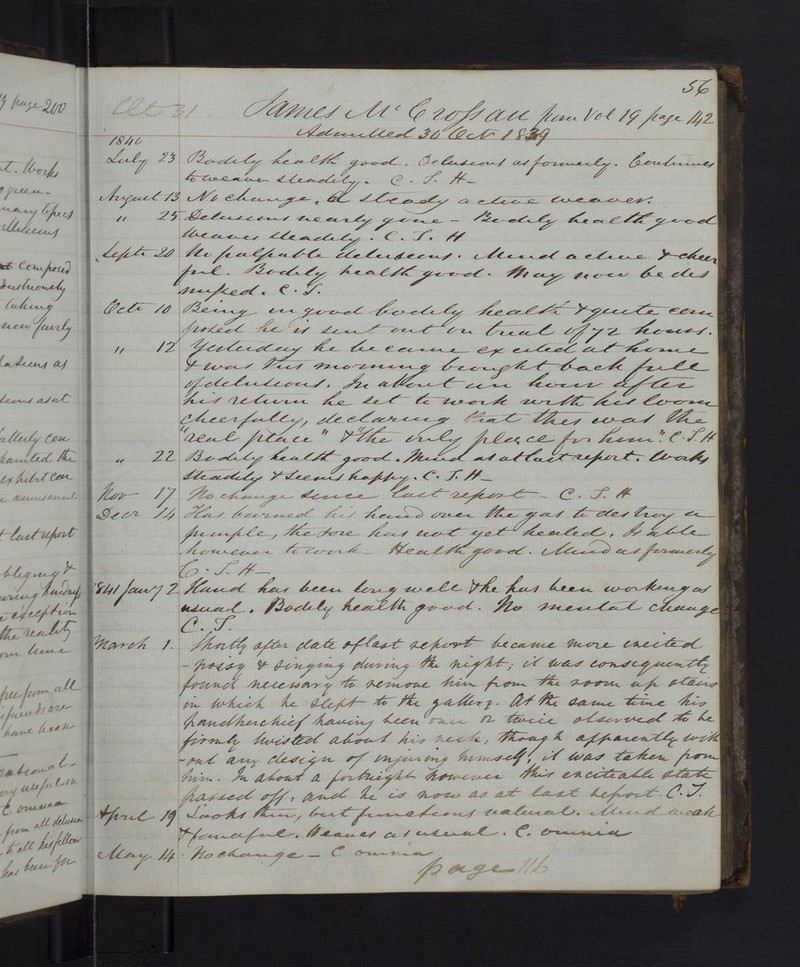 56
Æt 31 James Mc Crossan from Vol 19 page 142
Admitted 30 Oct 1839
1840
July 23 Bodily health good. Delusions as formerly. Continues
to weave steadily. C. T. H
August 13 No change. A steady active weaver.
" 25 Delusions nearly gone - Bodily health good
Weaves steadily. C. T. H
Septr 20 No palpable delusions. Mind active & cheer
ful. Bodily health good. May now be dis
missed. C. T.
Octr 10 Being in good bodily health & quite com
posed he is sent out on trial of 72 hours.
" 12 Yesterday he became excited at home
& was this morning brought back full
of delusions. In about an hour after
his return he set to work with his loom
cheerfully, declaring that this was the
"real place" & "the only place for him". C. T. H
" 22 Bodily health good. Mind as at last report. Works
steadily & seems happy. C. T. H
Nov 17 No change since last report - C. T. H
Decr 14 Has burned his hand over the gas to destroy a
pimple, the sore has not yet healed. Is able
however to work - Health good. Mind as formerly
C. T. H
1841 Jany 2 Hand has been long well & he has been working as
usual. Bodily health good. No mental change
C. T.
March 1. Shortly after date of last report became more excited
- noisy & singing during the night; it was consequently
found necessary to remove him from the room up stairs
in which he slept to the gallery. At the same time his
handkerchief having been once or twice observed to be
firmly twisted about his neck, though apparently with
-out any design of injuring himself, it was taken from
him. In about a fortnight however this excitable state
passed off, and he is now as at last report. C. T.
April 19 Looks thin, but functions natural. Mind weak
& fanciful. Weaves as usual. C. omnia
May 14 No change - C omnia
page 116
page 200
Works
composed
taking
now fairly
as at
last report
exception
the reality
free from all
friends are
have been
C. omnia
from all delusion
to all his fellow
has been for